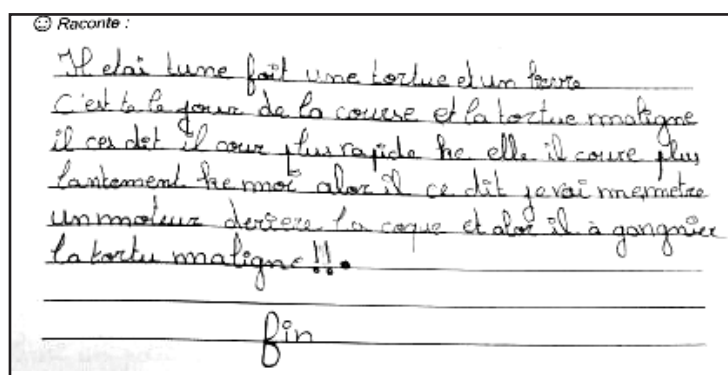 Raconte :
Il etai tune foit une tortue et un lievre
C'est te le gour de la course et la tortue maligne
il ces dit il cour plus rapide ke elle il coure plus
lantement ke moi alor il ce dit je vai memetre
un moteur deriere la coque et alor il à gangnier
la tortu maligne !!.
fin